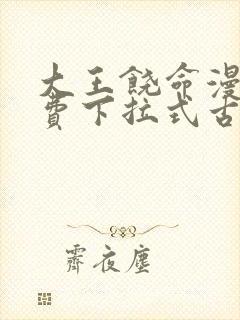 大王饶命漫
费下拉式古
霽夜塵